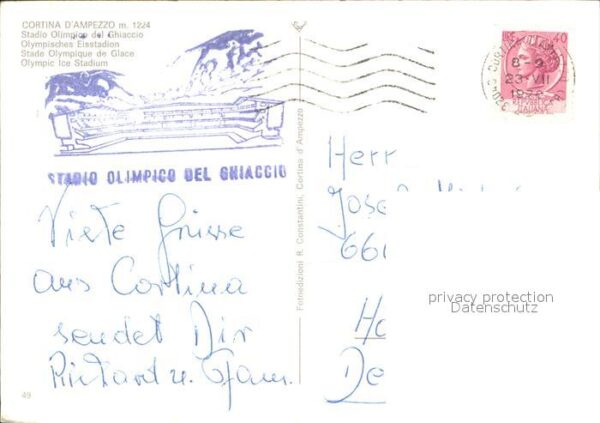 CORTINA D'AMPEZZO m. 1224
Stadio Olimpico del Ghiaccio
Olympisches Eisstadion
Stade Olympique de Glace
Olympic Ice Stadium
STADIO OLIMPICO DEL GHIACCIO
Viele Grüsse
aus Cortina
sendet Dir
Richard u. Fam.
49
Fotoedizioni R. Constantini, Cortina d'Ampezzo
40
8-9
23 VII
Herr
Jose
66
Ho
De
privacy protection
Datenschutz